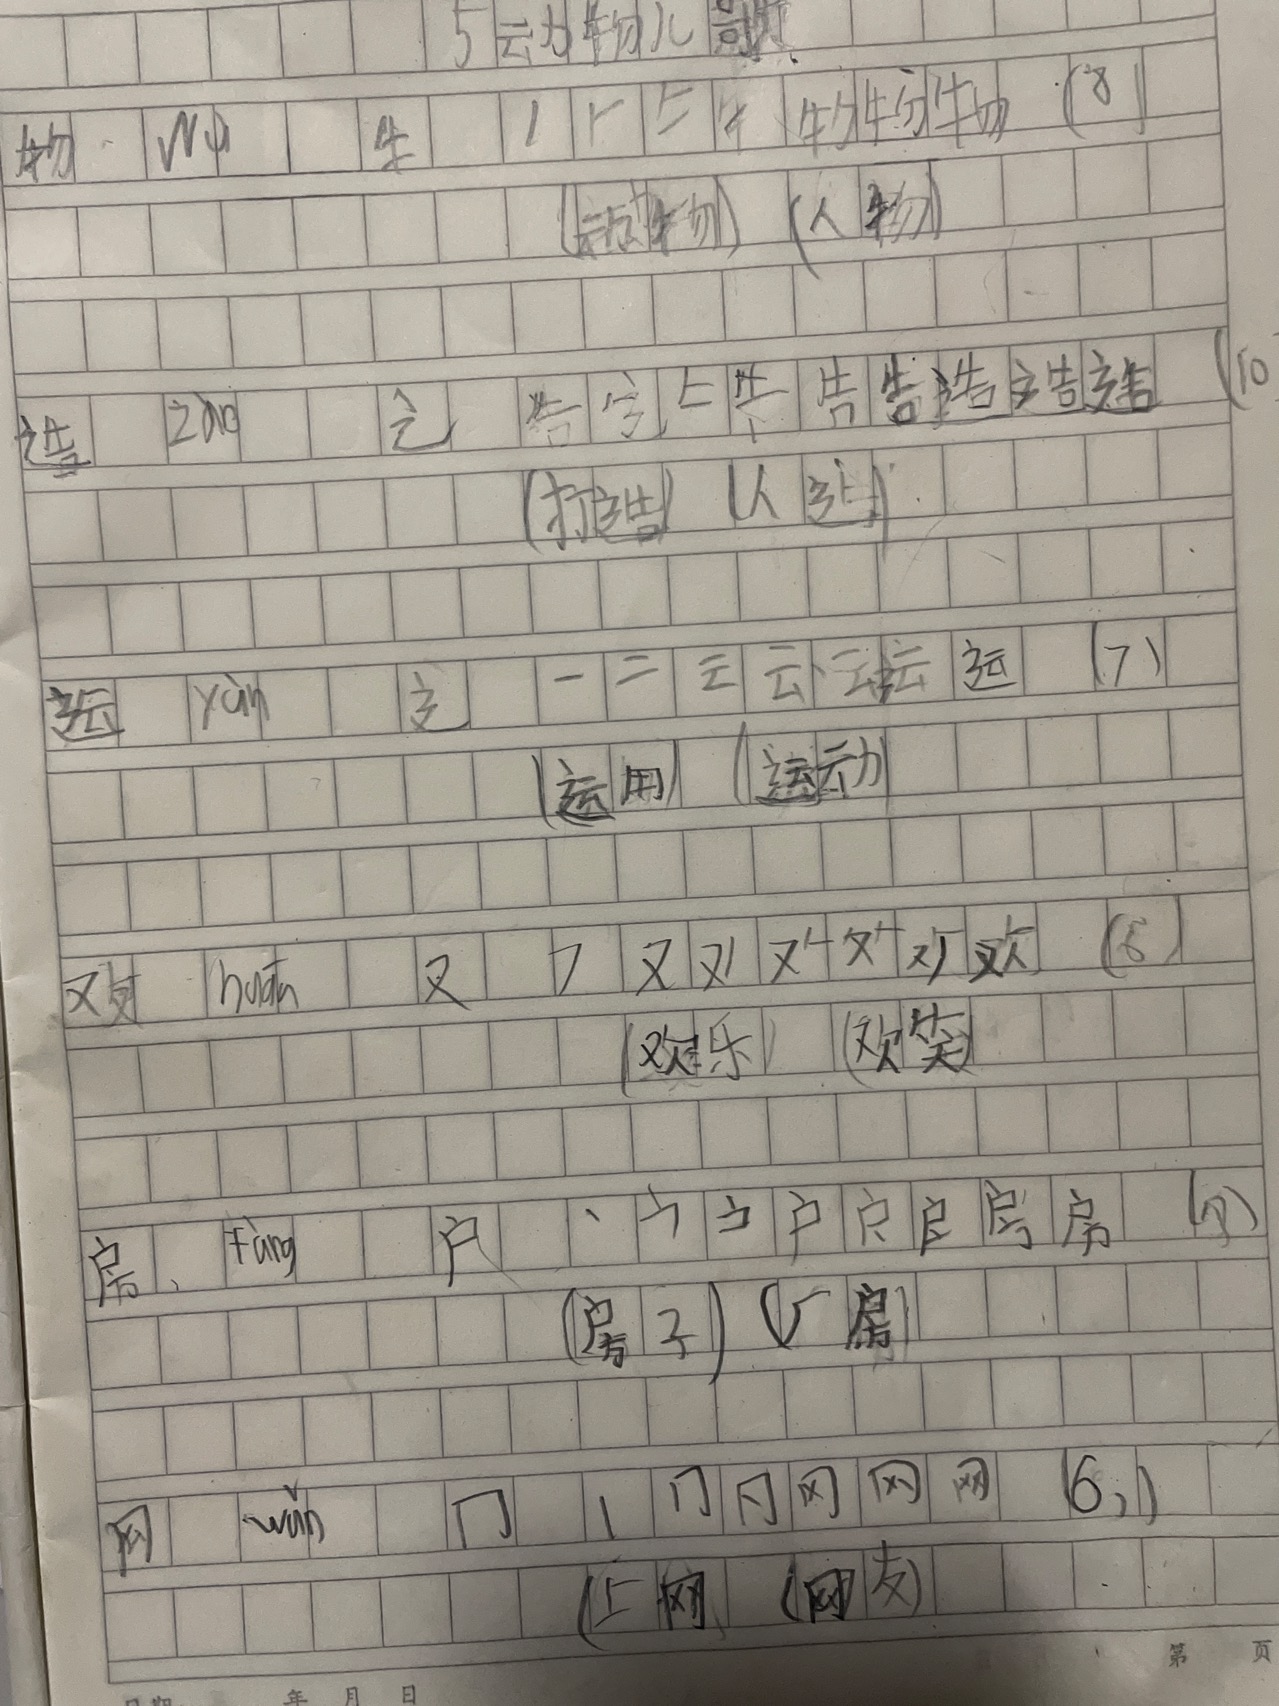 5 动物儿歌
物 wù 牛 丿 𠂉 牛 物 物 物 (8)
(动物) (人物)
造 zào 辶 告 告 告 造 造 造 (10
(打造) (人造)
运 yùn 辶 一 二 云 云 运 运 (7)
(运用) (运动
欢 huān 又 フ 又 欢 (6)
(欢乐) (欢笑)
房 fáng 户 丶 户 房 房 (8)
(房子) (厂房)
网 wǎn 冂 丨 冂 冈 网 网 (6)
(上网 (网友)
第 页
日期 年 月 日